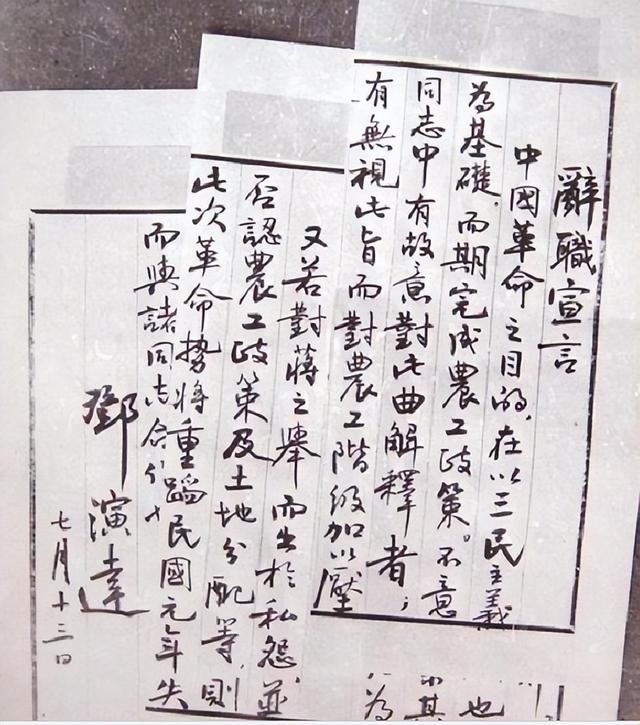 辭職宣言
中國革命之目的,在以三民主義
為基礎,而期完成農工政策。不意
同志中有故意對此曲解釋者;
有無視此旨而對農工階級加以壓
又若對蔣之舉而出於私怨,並
否認農工政策及土地分配等,則
此次革命勢將重蹈民國元年失
而與諸同志
鄧演達
七月十三日
也
其
為